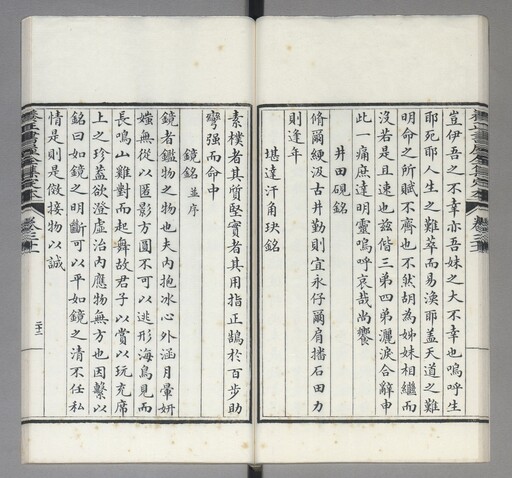 豈伊吾之不幸亦吾妹之大不幸也嗚呼生
耶死耶人生之難萃而易渙耶蓋天道之難
明命之所賦不齊也不然胡為姊妹相繼而
沒若是且速也詒偕三弟四弟灑淚合辭申
此一痛庶達明靈嗚呼哀哉尚饗
井田硯銘
脩爾綆汲古井勤則宜永仔爾肩播石田力
則逢年
堪達汗角玦銘
素樸者其質堅實者其用指正鵠於百步助
彎强而命中
鏡銘並序
鏡者鑑物之物也夫內抱冰心外涵月暈妍
媸無從以匿影方圓不可以逃形海鳥見而
長鳴山雞對而起舞故君子以賞以玩充席
上之珍蓋欲澄虛治內應物無方也因繫以
銘曰如鏡之明斷可以平如鏡之清不任私
情是則是儆接物以誠